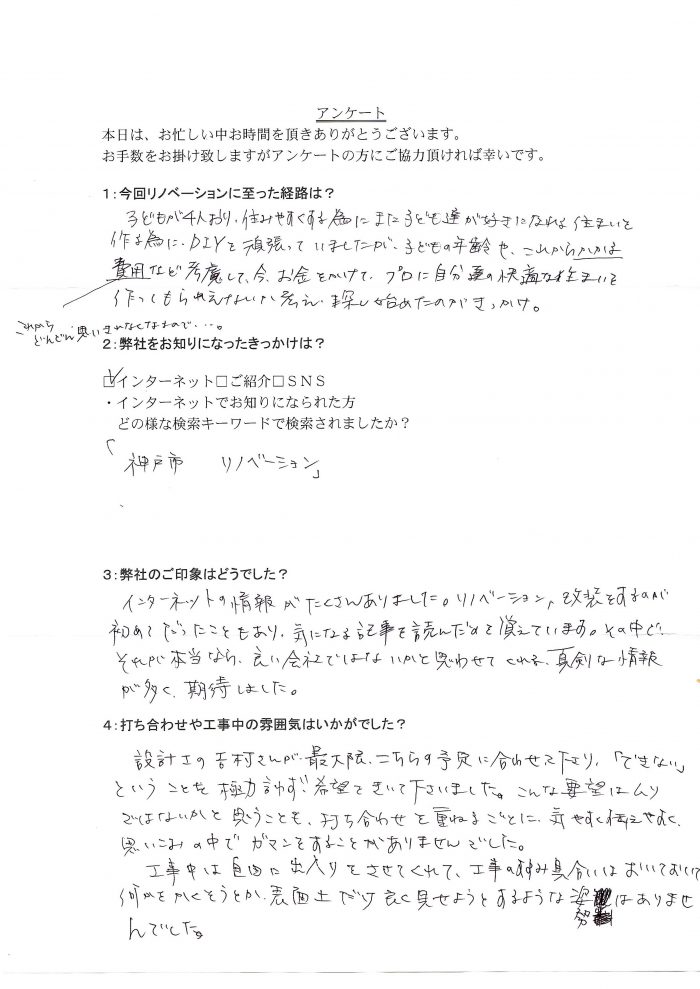 アンケート
本日は、お忙しい中お時間を頂きありがとうございます。
お手数をお掛け致しますがアンケートの方にご協力頂ければ幸いです。
1：今回リノベーションに至った経路は？
子どもが4人おり、住みやすくする為にまた子ども達が好きになれる住まいを
作る為に、DIYを頑張っていましたが、子どもの年齢や、これからかかる
費用など考慮して、今、お金をかけて、プロに自分達の快適な住まいを
作ってもらえないか考え、探し始めたのがきっかけ。
これから
どんどん思いきれなくなるので・・・。
2：弊社をお知りになったきっかけは？
☑インターネット□ご紹介□SNS
・インターネットでお知りになられた方
どの様な検索キーワードで検索されましたか？
「神戸市 リノベーション」
3：弊社のご印象はどうでした？
インターネットの情報がたくさんありました。リノベーション、改装をするのが
初めてだったこともあり、気になる記事を読んだのを覚えています。その中で、
それが本当なら、良い会社ではないかと思わせてくれる、真剣な情報
が多く、期待しました。
4：打ち合わせや工事中の雰囲気はいかがでした？
設計士の吉村さんが、最大限、こちらの予定に合わせて下さり、「できない」
ということを極力言わず、希望をきいて下さいました。こんな要望はムリ
ではないかと思うことも、打ち合わせを重ねるごとに、気やすく伝えやすく、
思いこみの中でガマンをすることがありませんでした。
工事中は自由に出入りをさせてくれて、工事のすすみ具合いはおいておいて
何かをかくそうとか、表面上だけ良く見せようとするような姿勢はありませ
んでした。